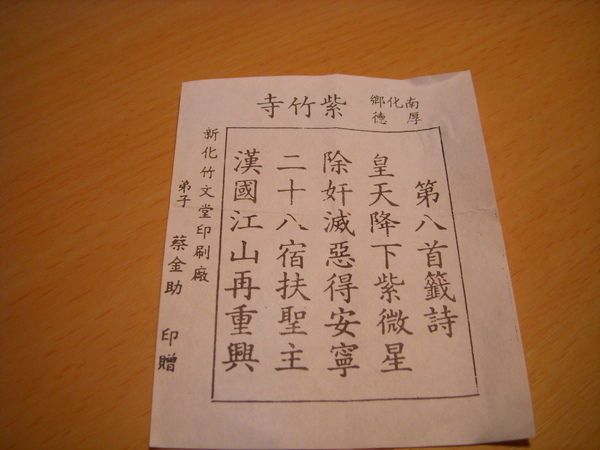 南化鄉
厚德
紫竹寺
第八首籤詩
皇天降下紫微星
除奸滅惡得安寧
二十八宿扶聖主
漢國江山再重興
新化竹文堂印刷廠
弟子 蔡金助 印贈